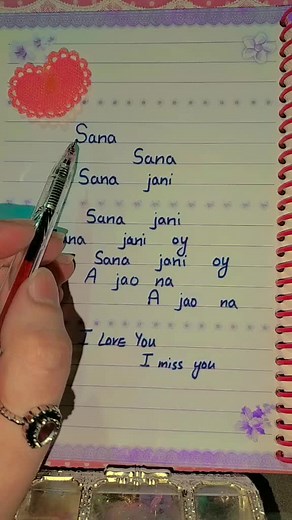 Sana
Sana
Sana jani
Sana jani
jani oy
Sana jani oy
A jao na
A jao na
I Love You
I miss you